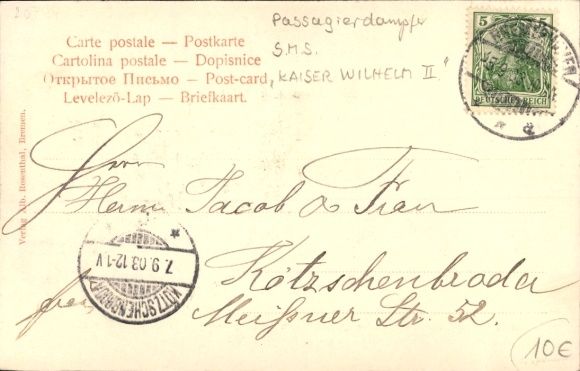 Passagierdampfer
S.M.S.
"KAISER WILHELM II."
Carte postale — Postkarte
Cartolina postale — Dopisnice
Открытое Письмо — Post-card
Levelező-Lap — Briefkaart.
5 5
DEUTSCHES REICH
Verlag Alb. Rosenthal, Bremen.
Herrn
Herm. Jacob & Frau
Kötzschenbroda
Meißner Str. 52.
frei
7.9.03.12-1V
KÖTZSCHENBRODA
10€